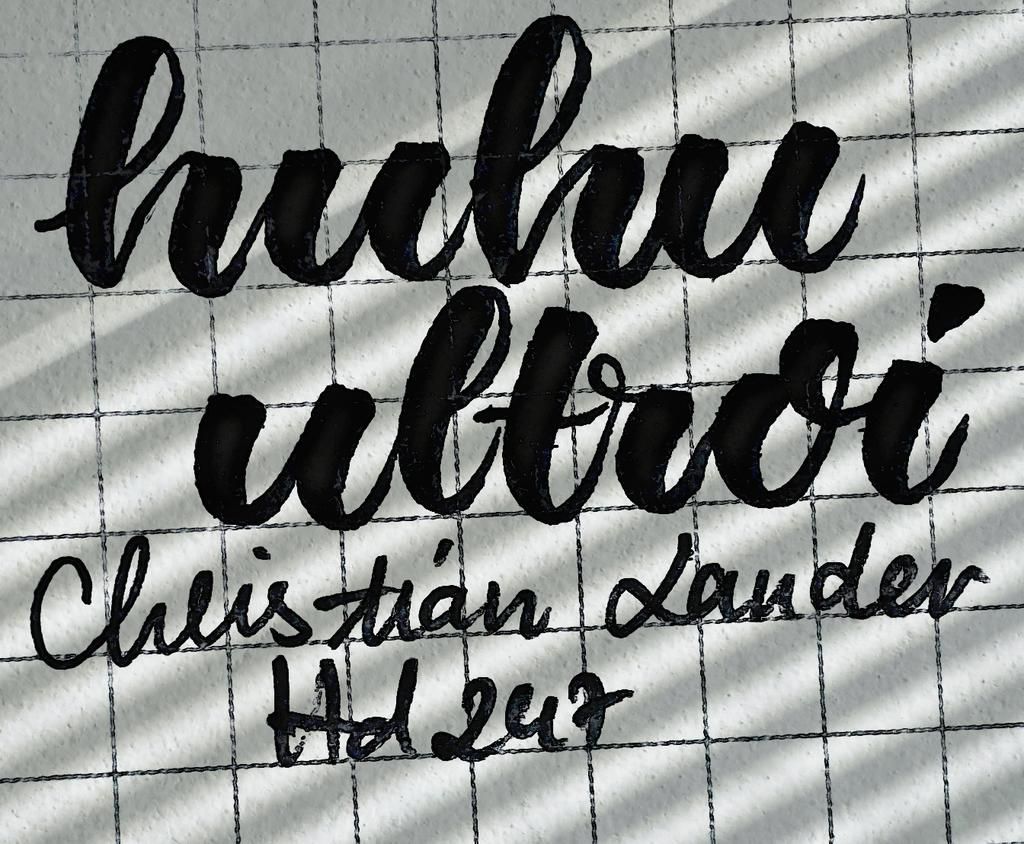 huhu
ultroi
Christian Lander
Hd 247